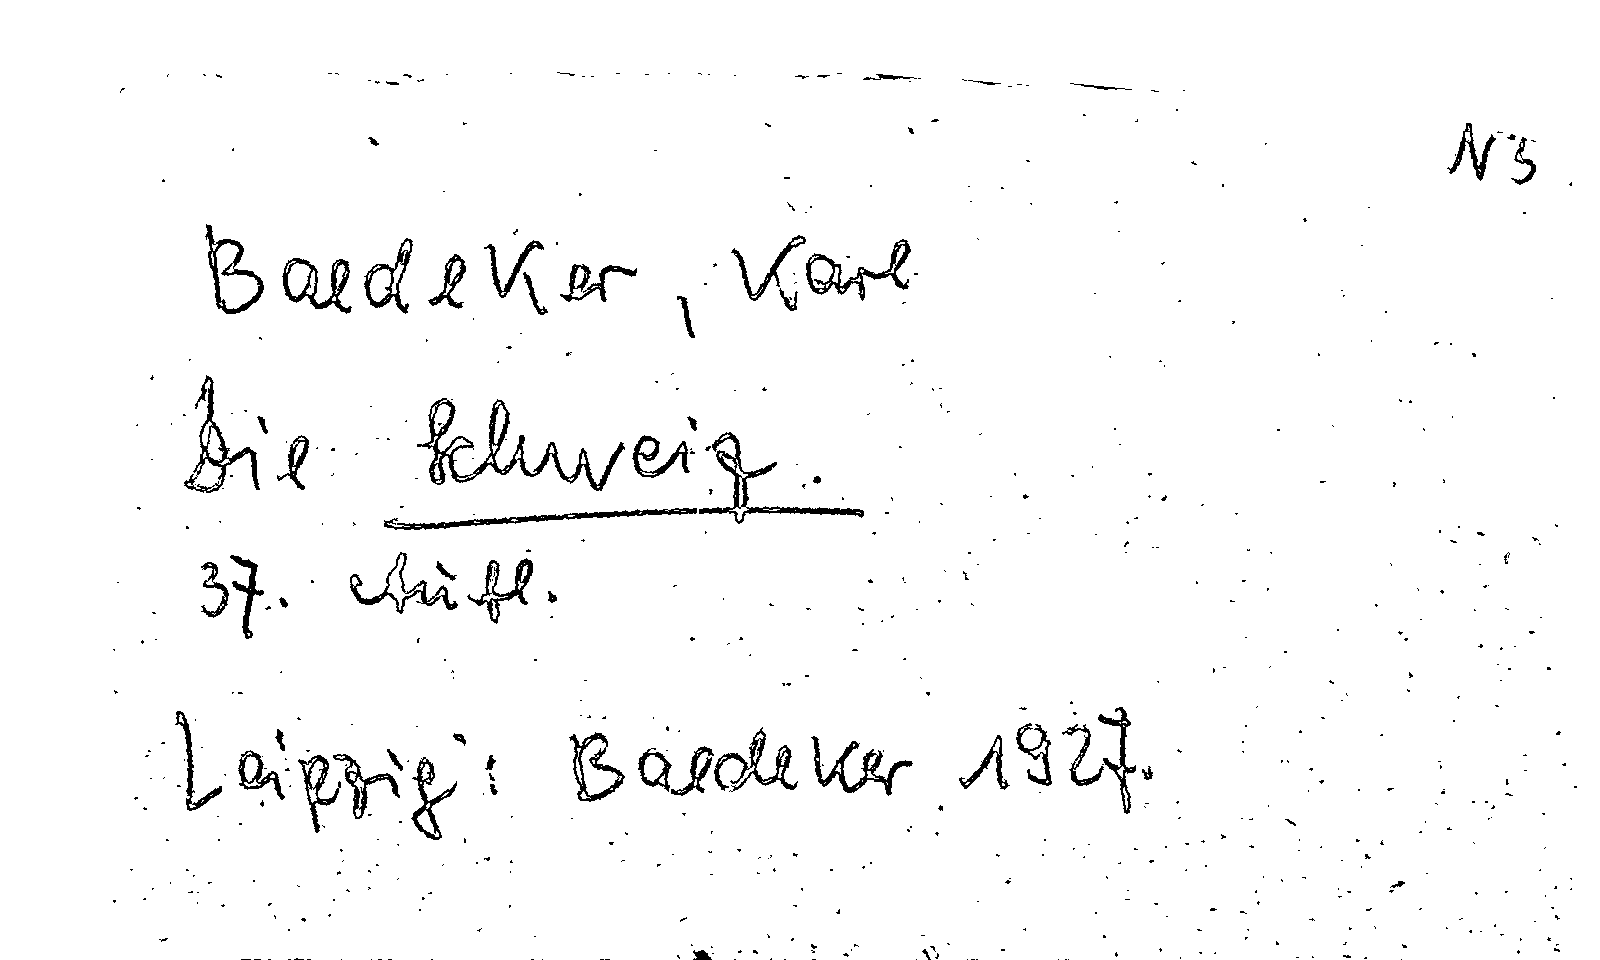 N 3
Baedeker, Karl
Die Schweiz.
37. Aufl.
Leipzig: Baedeker 1927.